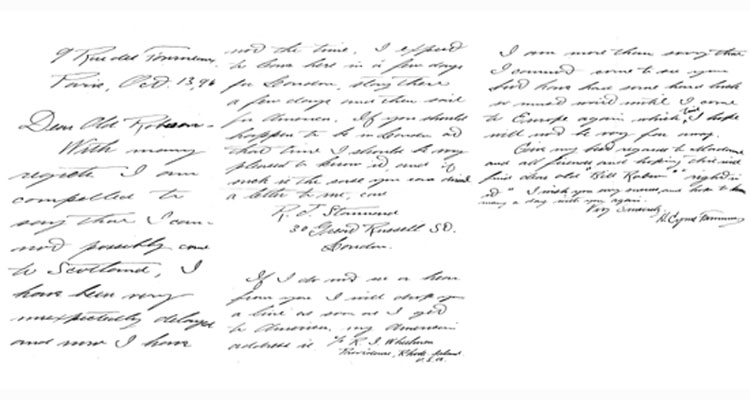 9 Rue des
Paris, Oct. 13, 96
Dear Old Robson -
With many
regrets I am
compelled to
say that I can-
not possibly come
to Scotland, I
have been very
unexpectedly delayed
and now I have
not the time. I expect
to leave here in a few days
for London, stay there
a few days and then sail
for America. If you should
happen to be in London at
that time I should be very
pleased to know it and if
such is the case you can direct
a letter to me, care
R. J.
30 Great Russell St.
London.
If I do not see or hear
from you I will drop you
a line as soon as I get
to America, my American
address is c/o R. J.
Providence, Rhode Island.
U.S.A.
I am more than sorry that
I cannot come to see you
and have some hard luck
so must wait until I come
to Europe again which I hope
will not be very far away.
Give my best regards to
and all friends and hoping this will
find dear old "Bill" "right in
it" I wish you any
many a day with you again.
Very Sincerely,
H. Cyrus